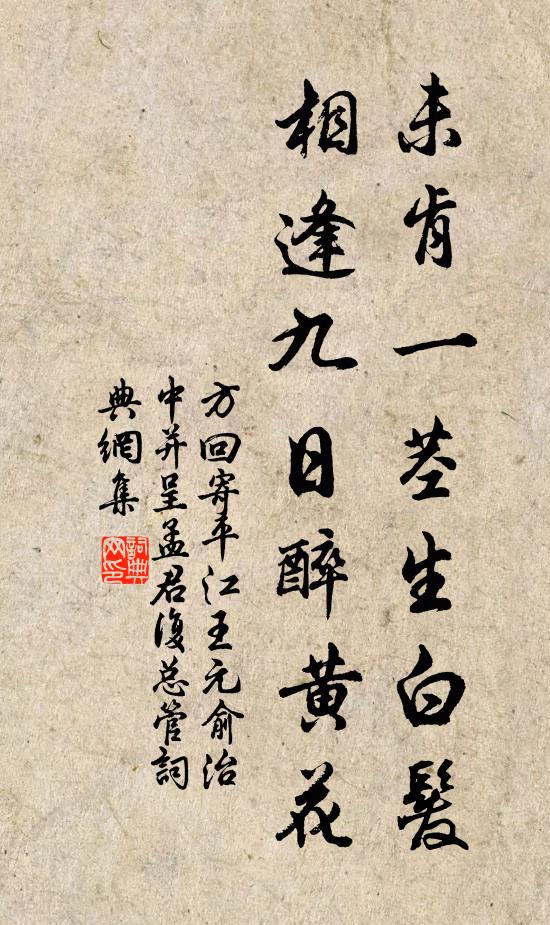 未肯一茎生白髮
相逢九日醉黄花
方回寄平江王元俞治
中并呈孟君復总管詞
典網集
詞典网印